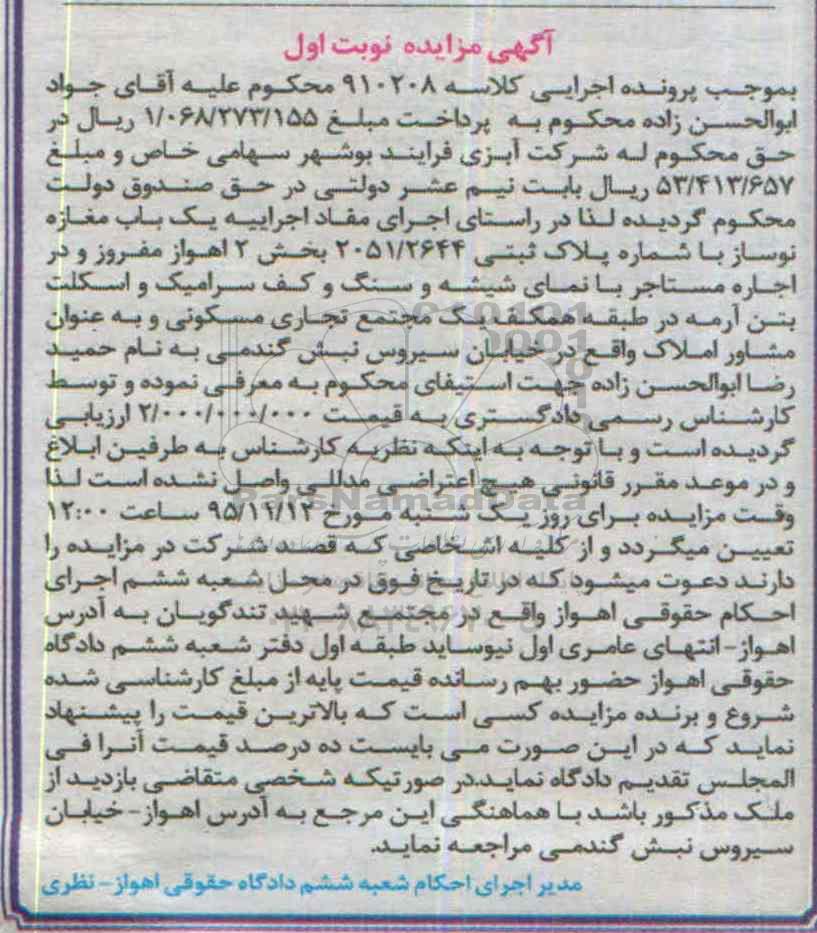 آگهی مزایده نوبت اول
بموجب پرونده اجرایی کلاسه ۹۱۰۲۰۸ محکوم علیه آقای جواد
ابوالحسن زاده محکوم به پرداخت مبلغ ۱/۰۶۸/۲۷۳/۱۵۵ ریال در
حق محکوم له شرکت آبزی فرایند بوشهر سهامی خاص و مبلغ
۵۳/۴۱۳/۶۵۷ ریال بابت نیم عشر دولتی در حق صندوق دولت
محکوم گردیده لذا در راستای اجرای مفاد اجراییه یک باب مغازه
نوساز با شماره پلاک ثبتی ۲۰۵۱/۲۶۴۴ بخش ۲ اهواز مفروز و در
اجاره مستاجر با نمای شیشه و سنگ و کف سرامیک و اسکلت
بتن آرمه در طبقه همکف یک مجتمع تجاری مسکونی و به عنوان
مشاور املاک واقع در خیابان سیروس نبش گندمی به نام حمید
رضا ابوالحسن زاده جهت استیفای محکوم به معرفی نموده و توسط
کارشناس رسمی دادگستری به قیمت ۲/۰۰۰/۰۰۰/۰۰۰ ارزیابی
گردیده است و با توجه به اینکه نظریه کارشناس به طرفین ابلاغ
و در موعد مقرر قانونی هیچ اعتراضی مدللی واصل نشده است لذا
وقت مزایده برای روز یک شنبه مورخ ۹۵/۱۲/۱۲ ساعت ۱۲:۰۰
تعیین میگردد و از کلیه اشخاصی که قصد شرکت در مزایده را
دارند دعوت میشود که در تاریخ فوق در محل شعبه ششم اجرای
احکام حقوقی اهواز واقع در مجتمع شهید تندگویان به آدرس
اهواز-انتهای عامری اول نیوساید طبقه اول دفتر شعبه ششم دادگاه
حقوقی اهواز حضور بهم رسانده قیمت پایه از مبلغ کارشناسی شده
شروع و برنده مزایده کسی است که بالاترین قیمت را پیشنهاد
نماید که در این صورت می بایست ده درصد قیمت آنرا فی
المجلس تقدیم دادگاه نماید.در صورتیکه شخصی متقاضی بازدید از
ملک مذکور باشد با هماهنگی این مرجع به آدرس اهواز-خیابان
سیروس نبش گندمی مراجعه نماید.
مدیر اجرای احکام شعبه ششم دادگاه حقوقی اهواز-نظری
ParsNamadData